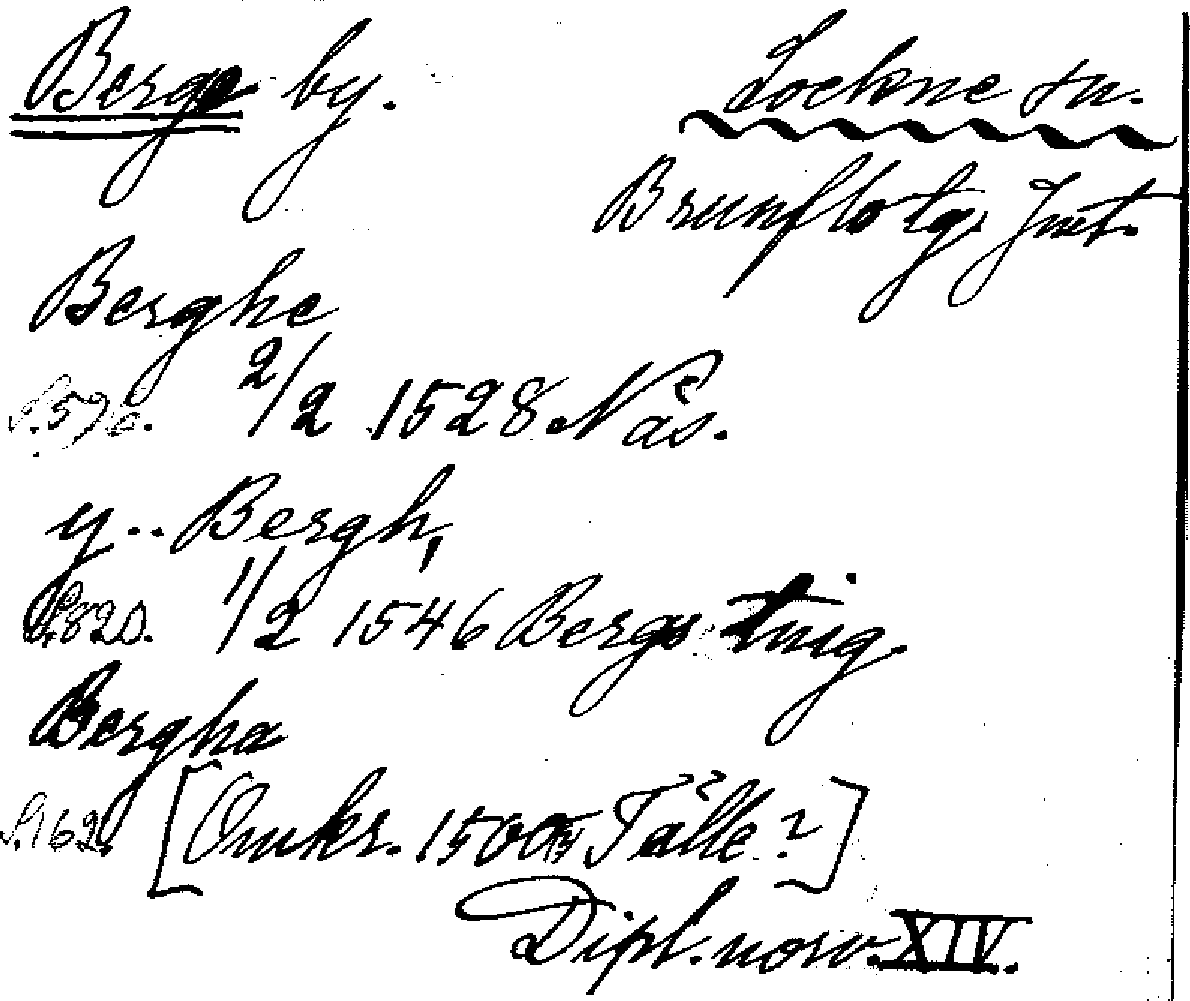 Berge by.
Lockne sn.
Brunflo tg. Jmt.
Berghe
S. 596. 2/2 1528. Nås.
y.. Bergh,
S. 820. 1/2 1546 Bergs ting.
Bergha
S. 162. [Omkr. 1500 Tälle?]
Dipl. norv. XIV.